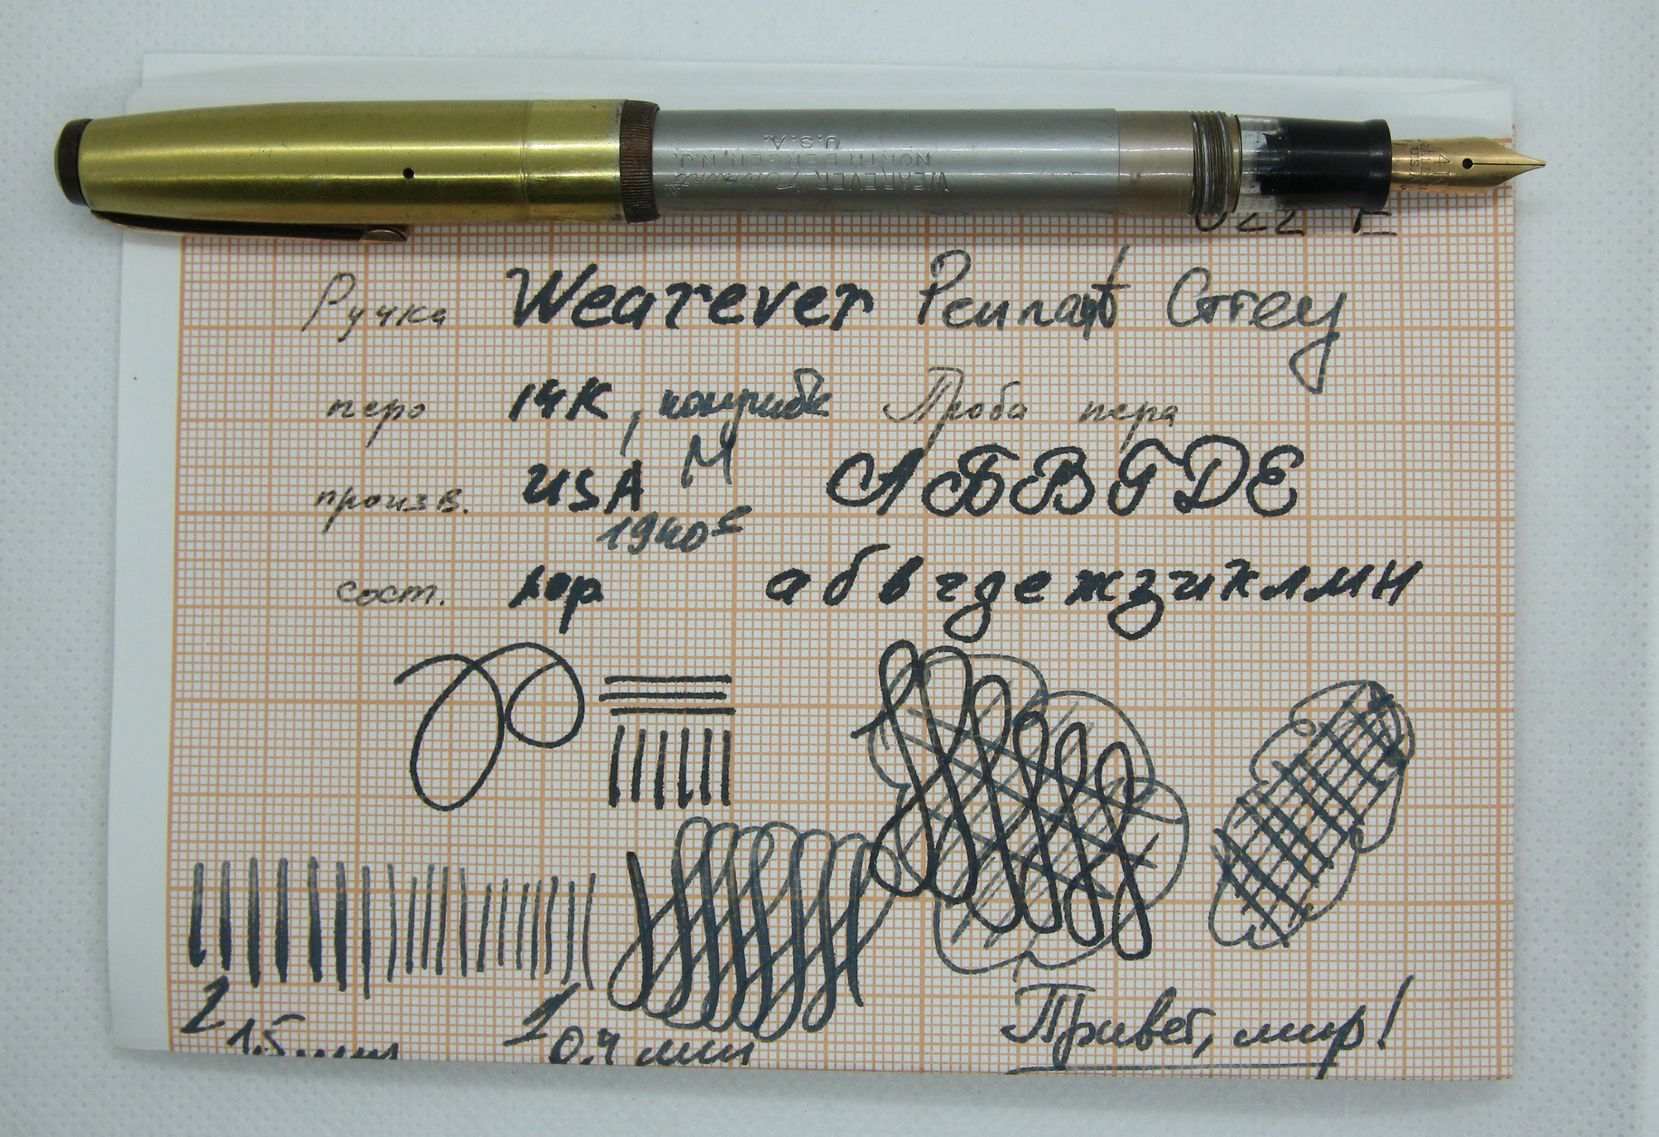 WEAREVER
NORTH BERGEN, N.J.
U.S.A.
14K
022 F
Ручка Wearever Pennant Grey
перо 14K, Проба пера
M
произв. USA АБВГДЕ
1940s
сост. хор. абвгдежзиклмн
1,5 мм 0,4 мм
Привет, мир!